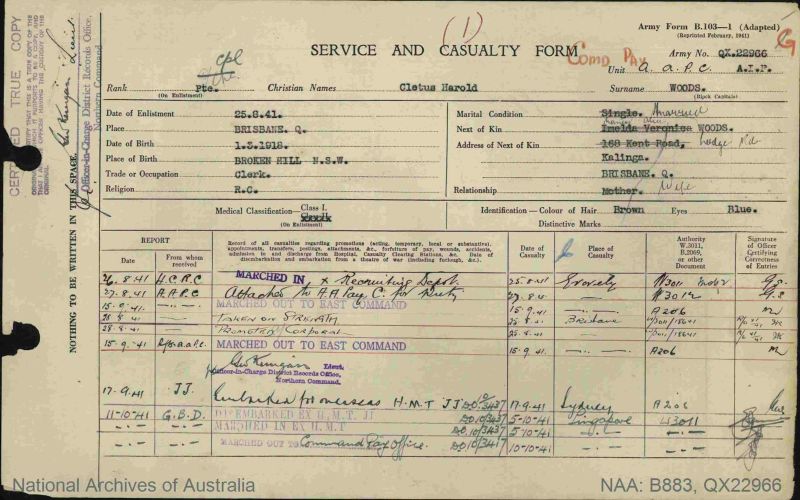 (1)
Army Form B.103—1 (Adapted)
(Reprinted February, 1941)
G
SERVICE AND CASUALTY FORM
Comd Pay
Army No. QX.22966
Unit A.A.P.C. A.I.F.
cpl
Rank Pte. Christian Names Cletus Harold Surname WOODS.
(On Enlistment) (Block Capitals)
CERTIFIED TRUE COPY
NOTHING TO BE WRITTEN IN THIS SPACE.
Officer-in-Charge District Records Office,
Northern Command
Lieut.
Date of Enlistment 25.8.41.
Place BRISBANE. Q.
Date of Birth 1.3.1918.
Place of Birth BROKEN HILL N.S.W.
Trade or Occupation Clerk.
Religion R.C.
Marital Condition Single. Married
Next of Kin Imelda Veronica WOODS.
Address of Next of Kin 168 Kent Road,
Kalinga.
BRISBANE. Q.
Relationship Mother. Wife
Medical Classification— Class I.
(On Enlistment)
Identification—Colour of Hair Brown Eyes Blue.
Distinctive Marks
REPORT
Date
From whom received
Record of all casualties regarding promotions (acting, temporary, local or substantive), appointments, transfers, postings, attachments, &c., forfeiture of pay, wounds, accidents, admission to and discharge from Hospital, Casualty Clearing Stations, &c. Date of disembarkation and embarkation from a theatre of war (including furlough, &c.)
Date of Casualty
Place of Casualty
Authority W.3011, B.2069, or other Document
Signature of Officer Certifying Correctness of Entries
26.8.41 H.C.R.C MARCHED IN Recruiting Depot. 25.8.41 W3011
27.8.41 A.A.P.C Attached to A.A. Pay C. for Duty 27.8.41 W3012
15.9.41 MARCHED OUT TO EAST COMMAND 15.9.41 A206
28.8.41 TAKEN ON STRENGTH 25.8.41 Brisbane
28.8.41 PROMOTED CORPORAL 25.8.41
15.9.41 MARCHED OUT TO EAST COMMAND 15.9.41 A206
Lieut.
Officer-in-Charge District Records Office,
Northern Command.
17.9.41 JJ. Embarked for overseas H.M.T JJ DO 10/3437 17.9.41 Sydney A206
11-10-41 G.B.D. DISEMBARKED EX H.M.T. JJ DO 10/3437 5-10-41 Singapore W3011
MARCHED IN EX H.M.T. DO 10/3437 5-10-41
MARCHED OUT TO Command Pay Office. DO 10/3417 10-10-41
National Archives of Australia
NAA: B883, QX22966